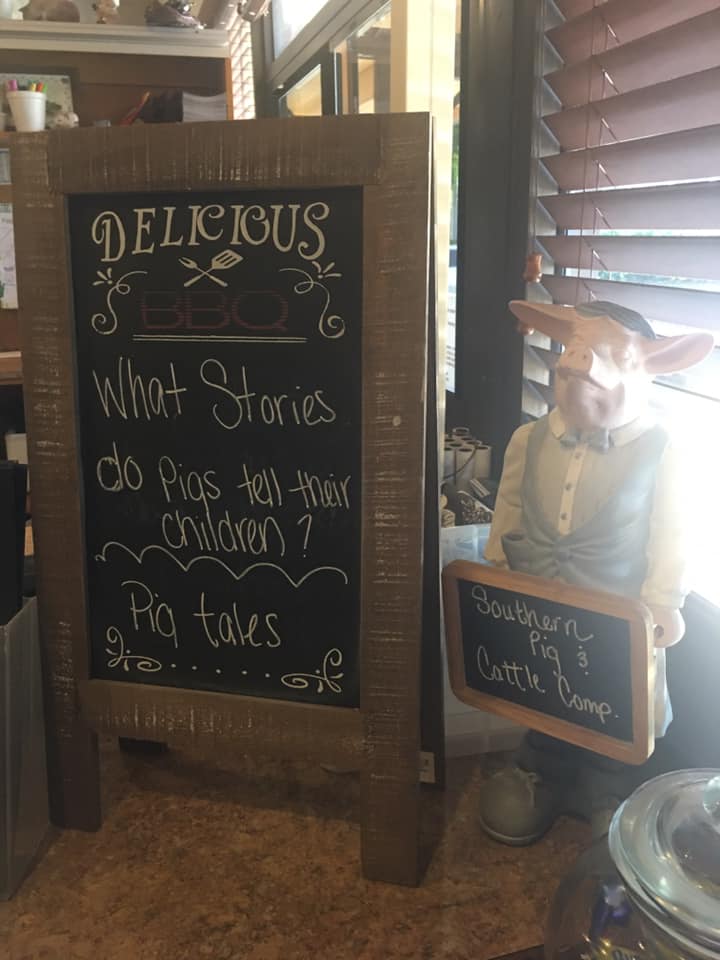 DELICIOUS
BBQ
What Stories
do Pigs tell their
children?
Pig tales
Southern
Pig &
Cattle Comp.